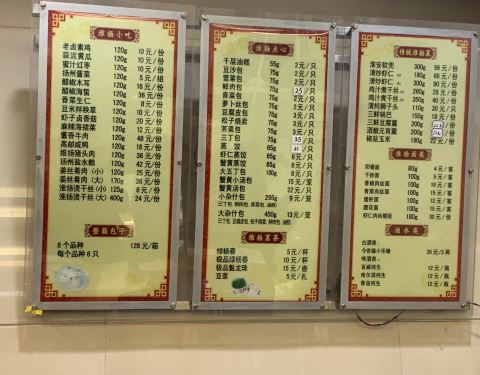 淮扬小吃
老卤素鸡 120g 10 元/份
蒜泥黄瓜 120g 10 元/份
蜜汁红枣 120g 10 元/份
扬州酱菜 120g 5 元/组
醋椒木耳 120g
醋椒海蜇 120g
香菜生仁 120g 8 元/份
豆米拌秧草 120g 10 元/份
虾子卤香菇 120g
麻辣海裙菜 120g
酱香牛肉 120g 48 元/份
高邮咸鸭 120g 18 元/份
维扬猪头肉 120g 36 元/份
扬州盐水鹅 120g 42 元/份
姜丝肴肉（小）120g 25 元/份
姜丝肴肉（大）170g 35 元/份
淮扬烫干丝（小）125g 8 元/份
淮扬烫干丝（大）400g 24 元/份
整箱包干
8 个品种 128 元/箱
每个品种 6 只
淮扬点心
千层油糕 55g 2 元/只
豆沙包 75g 2 元/只
雪菜包 75g 2 元/只
鲜肉包 75g 2.5 元/只
青菜包 75g 2 元/只
萝卜丝包 75g 2 元/只
豆腐皮包 75g 2 元/只
松子烧卖 75g 2 元/只
荠菜包 75g 3 元/只
三丁包 75g 3.5 元/只
蒸饺 65g 元/只
虾仁蒸饺 65g 6 元/只
蟹黄蒸饺 65g 6 元/只
大五丁包 100g 8 元/只
蟹黄小汤包 15 元/笼
蟹黄汤包 22 元/只
小杂什包 295g 9 元/笼
大杂什包 450g 13 元/笼
淮扬茗茶
绿扬春 5 元/杯
极品绿杨春 10 元/杯
极品魁龙珠 15 元/壶
豆浆 5 元/扎
传统淮扬菜
淮安软兜 300g 99 元/份
清炒虾仁 180g 68 元/份
清炒虾仁 280g 90 元/份
鸡汁煮干丝 260g 28 元/份
鸡汁煮干丝 350g 40 元/份
清炖狮子头 110g 30 元/只
三鲜锅巴 180g
三鲜豆腐羹 200g 元/份
道醋元宵羹 200g 元/份
椒盐玉米 180g 22 元/份
淮扬面类
阳春面 80g 4 元/客
干拌面 100g 5 元/客
青椒肉丝面 100g 15 元/客
青菜肉丝面 100g 15 元/客
雪虾面 100g 15 元/客
腰花面 100g 15 元/客
虾仁肉丝爆面 180g 30 元/份
酒水类
白酒类：
今世缘小乐缘 25 元/3 两
啤酒类：
百威纯生 12 元/瓶
哈尔滨纯生 12 元/瓶
青岛纯生 12 元/瓶